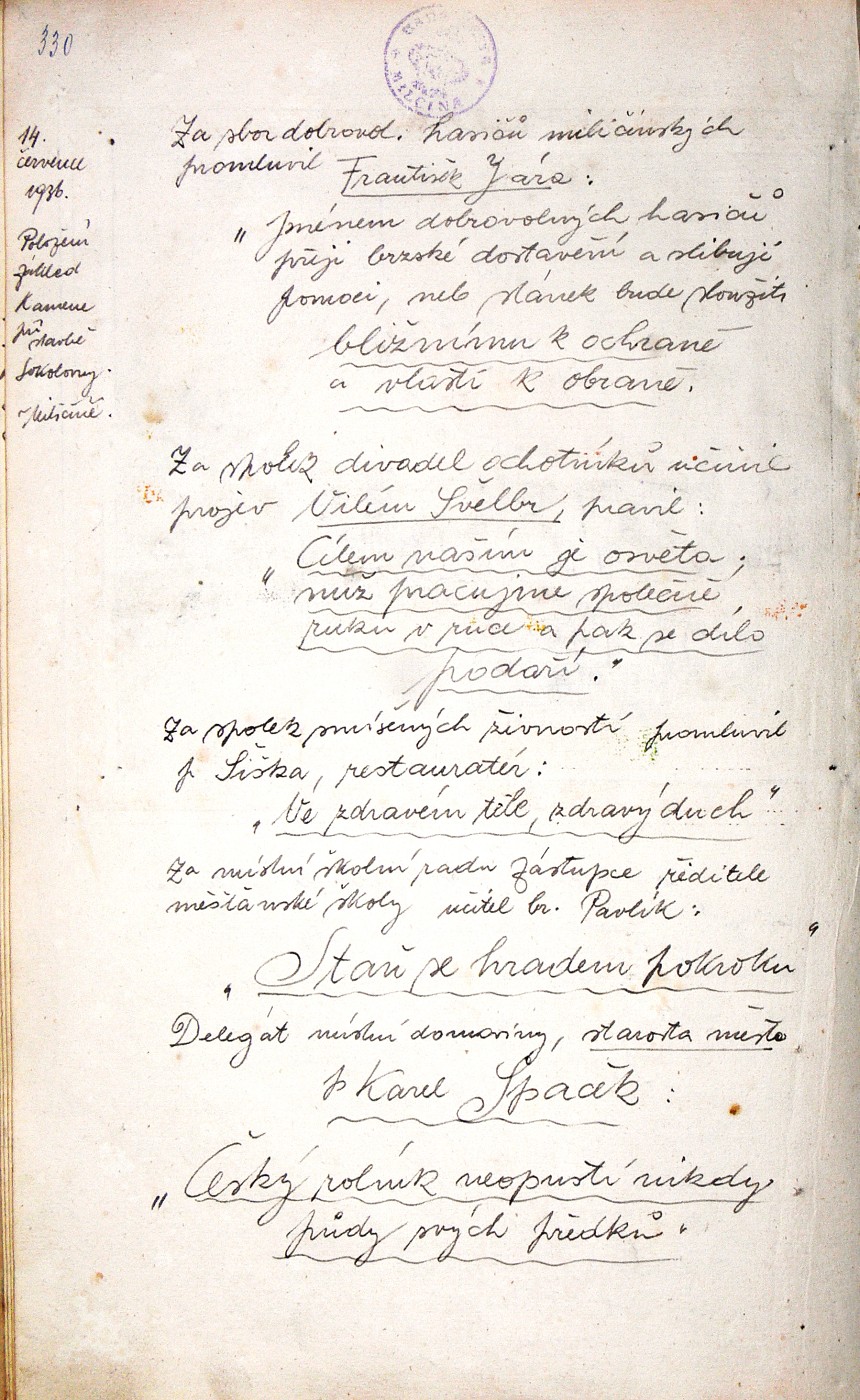 330
MILČÍNA
14.
července
1936.
Položení
základ
Kamene
při
stavbě
Sokolovny
Miličíně.
Za sbor dobrovol. hasičů miličínských
promluvil František Jára:
„Jménem dobrovolných hasičů
přeji brzské dostavění a slibuji
pomoci, neb stánek bude sloužiti
bližnímu k ochraně
a vlasti k obraně.
Za spolek divadel ochotníků učinil
projev Vilém Švelbr, pravil:
„Cílem naším je osvěta;
nuž pracujme společně,
ruku v ruce a pak se dílo
podaří."
Za spolek smíšených živností promluvil
p. Šiška, restauratér:
„Ve zdravém těle, zdravý duch"
Za místní školní radu zástupce ředitele
měšťanské školy učitel br. Pavlík:
„Staň se hradem pokroku"
Delegát místní domoviny, starosta města
p Karel Špaček:
„Český rolník neopustí nikdy
půdy svých předků"